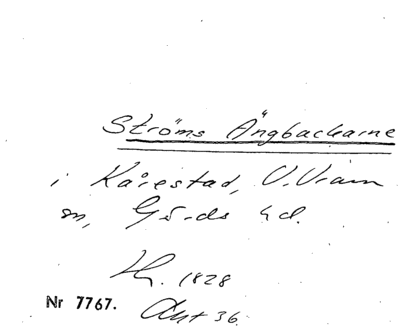 Ströms Ängbackarne
i Kårestad, V. Vram
sn, Gärds hd.
1828
Nr 7767. Akt 36